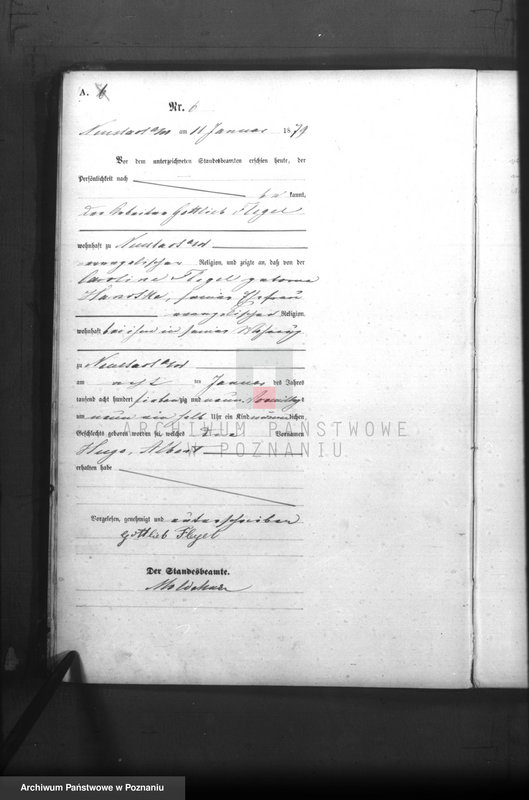 A. 6
Nr. 6
Neustadt a/W am 11 Januar 1879
Vor dem unterzeichneten Standesbeamten erschien heute, der
Persönlichkeit nach
kannt,
der Arbeiter Gottlieb Flegel
wohnhaft zu Neustadt
evangelischer Religion, und zeigte an, daß von der
Caroline Flegel geborne
Ehefrau
evangelischer Religion,
wohnhaft bei ihm in seiner Wohnung
zu Neustadt
am acht ten Januar des Jahres
tausend acht hundert siebenzig und neun Vormittags
um neun ein halb Uhr ein Kind männlichen
Geschlechts geboren worden sei, welches die Vornamen
Hugo, Albert
erhalten habe
Vorgelesen, genehmigt und unterschrieben
Gottlieb Flegel
Der Standesbeamte.
ARCHIWUM PAŃSTWOWE
W POZNANIU
Archiwum Państwowe w Poznaniu